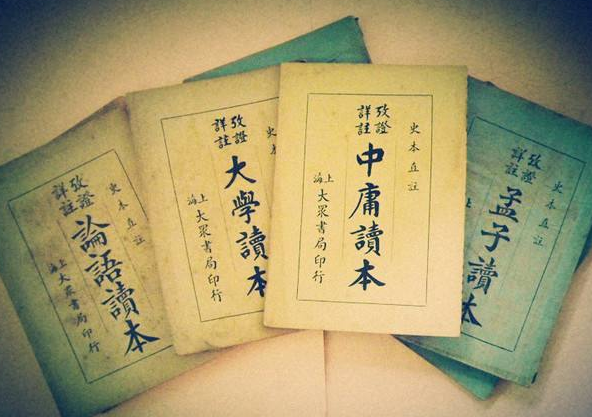 史本直註
攷證
詳註
論語讀本
上海
大眾書局印行
史
攷證
詳註
大學讀本
上海
大眾書局印行
史本直註
攷證
詳註
中庸讀本
上海
大眾書局印行
史本直註
攷證
詳註
孟子讀本
上